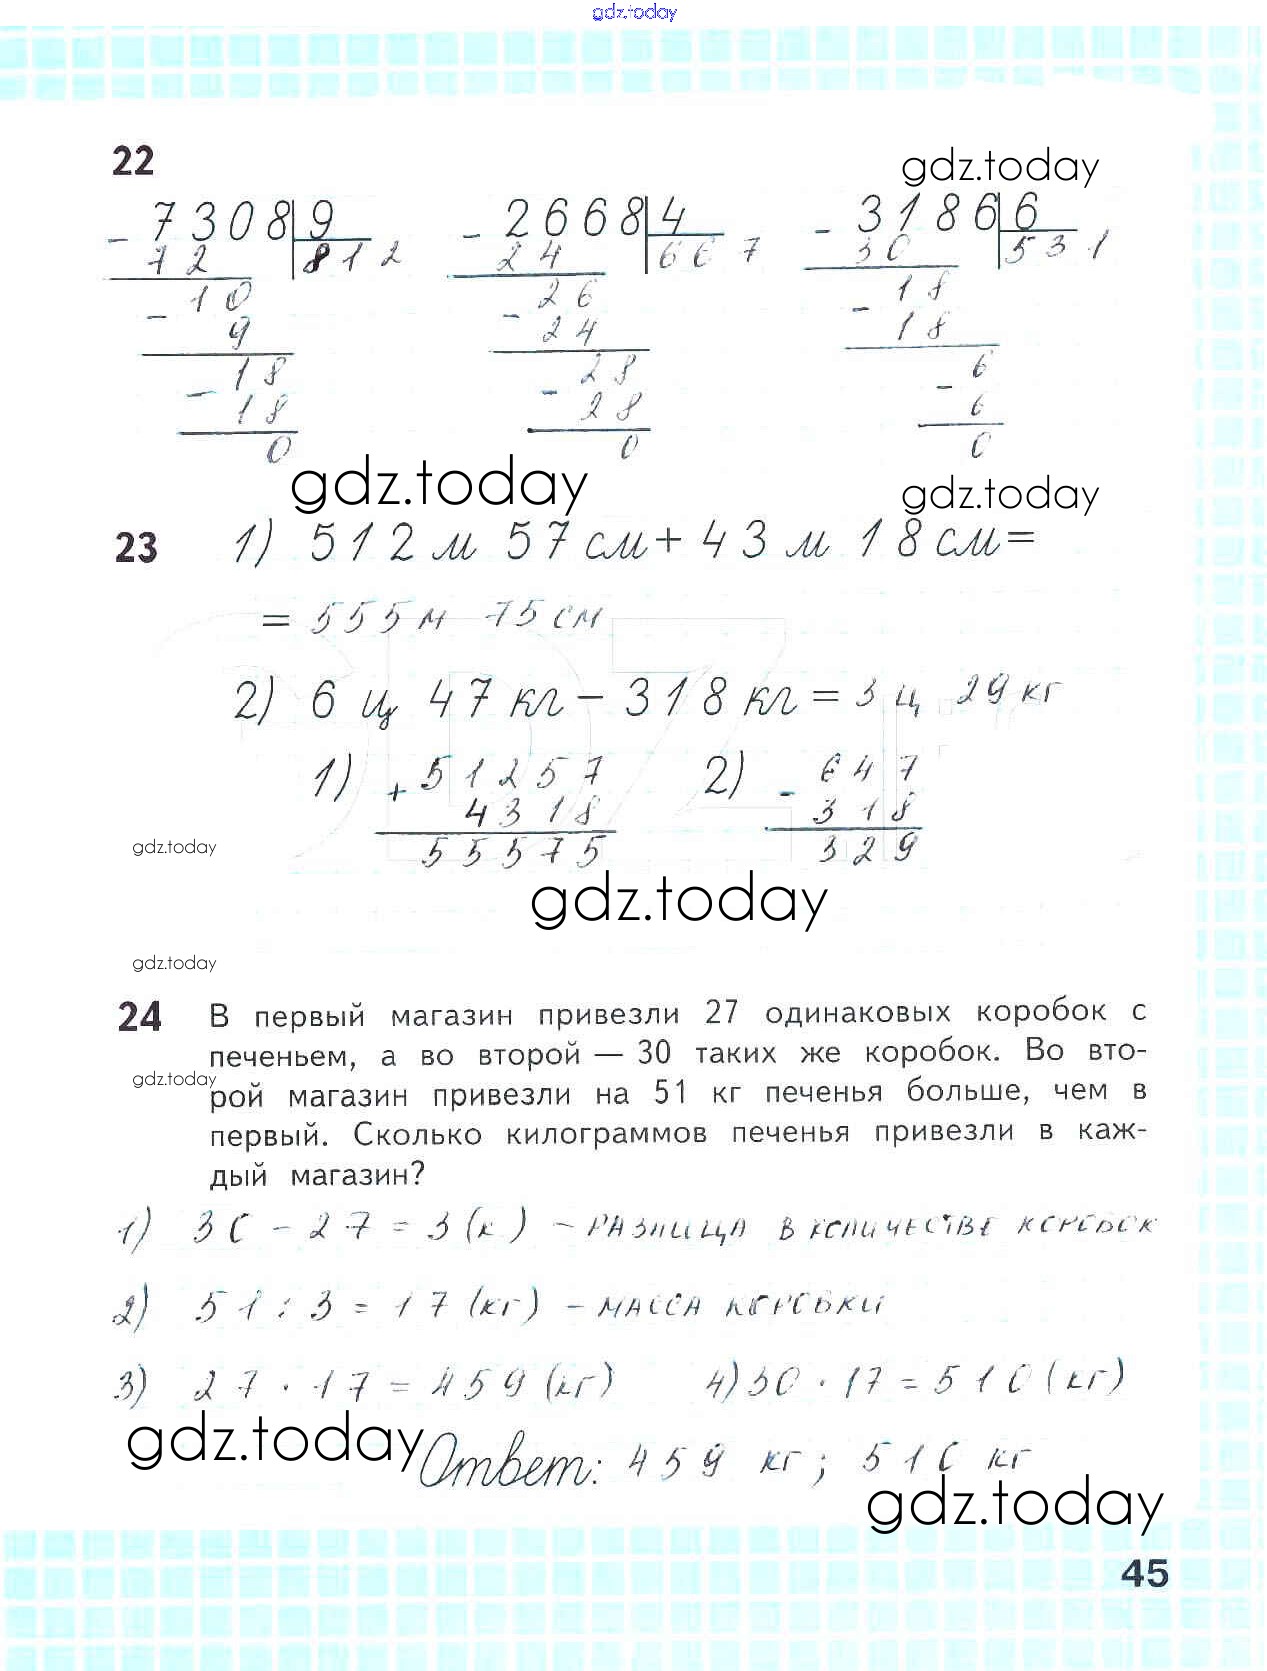 gdz.today
22
gdz.today
7308 9 2668 4 3186 6
- 72 812 - 24 667 - 30 531
10 26 18
- 9 - 24 - 18
18 28 6
- 18 - 28 - 6
0 0 0
gdz.today gdz.today
23 1) 512 м 57 см + 43 м 18 см =
= 555 м 75 см
2) 6 ц 47 кг - 318 кг = 3 ц 29 кг
1) + 51257 2) - 647
4318 318
gdz.today 55575 329
gdz.today
gdz.today
24 В первый магазин привезли 27 одинаковых коробок с
печеньем, а во второй — 30 таких же коробок. Во вто-
gdz.today
рой магазин привезли на 51 кг печенья больше, чем в
первый. Сколько килограммов печенья привезли в каж-
дый магазин?
1) 30 - 27 = 3 (к) - разница в количестве коробок
2) 51 : 3 = 17 (кг) - масса коробки
3) 27 · 17 = 459 (кг) 4) 30 · 17 = 510 (кг)
gdz.today Ответ: 459 кг; 510 кг
gdz.today
45